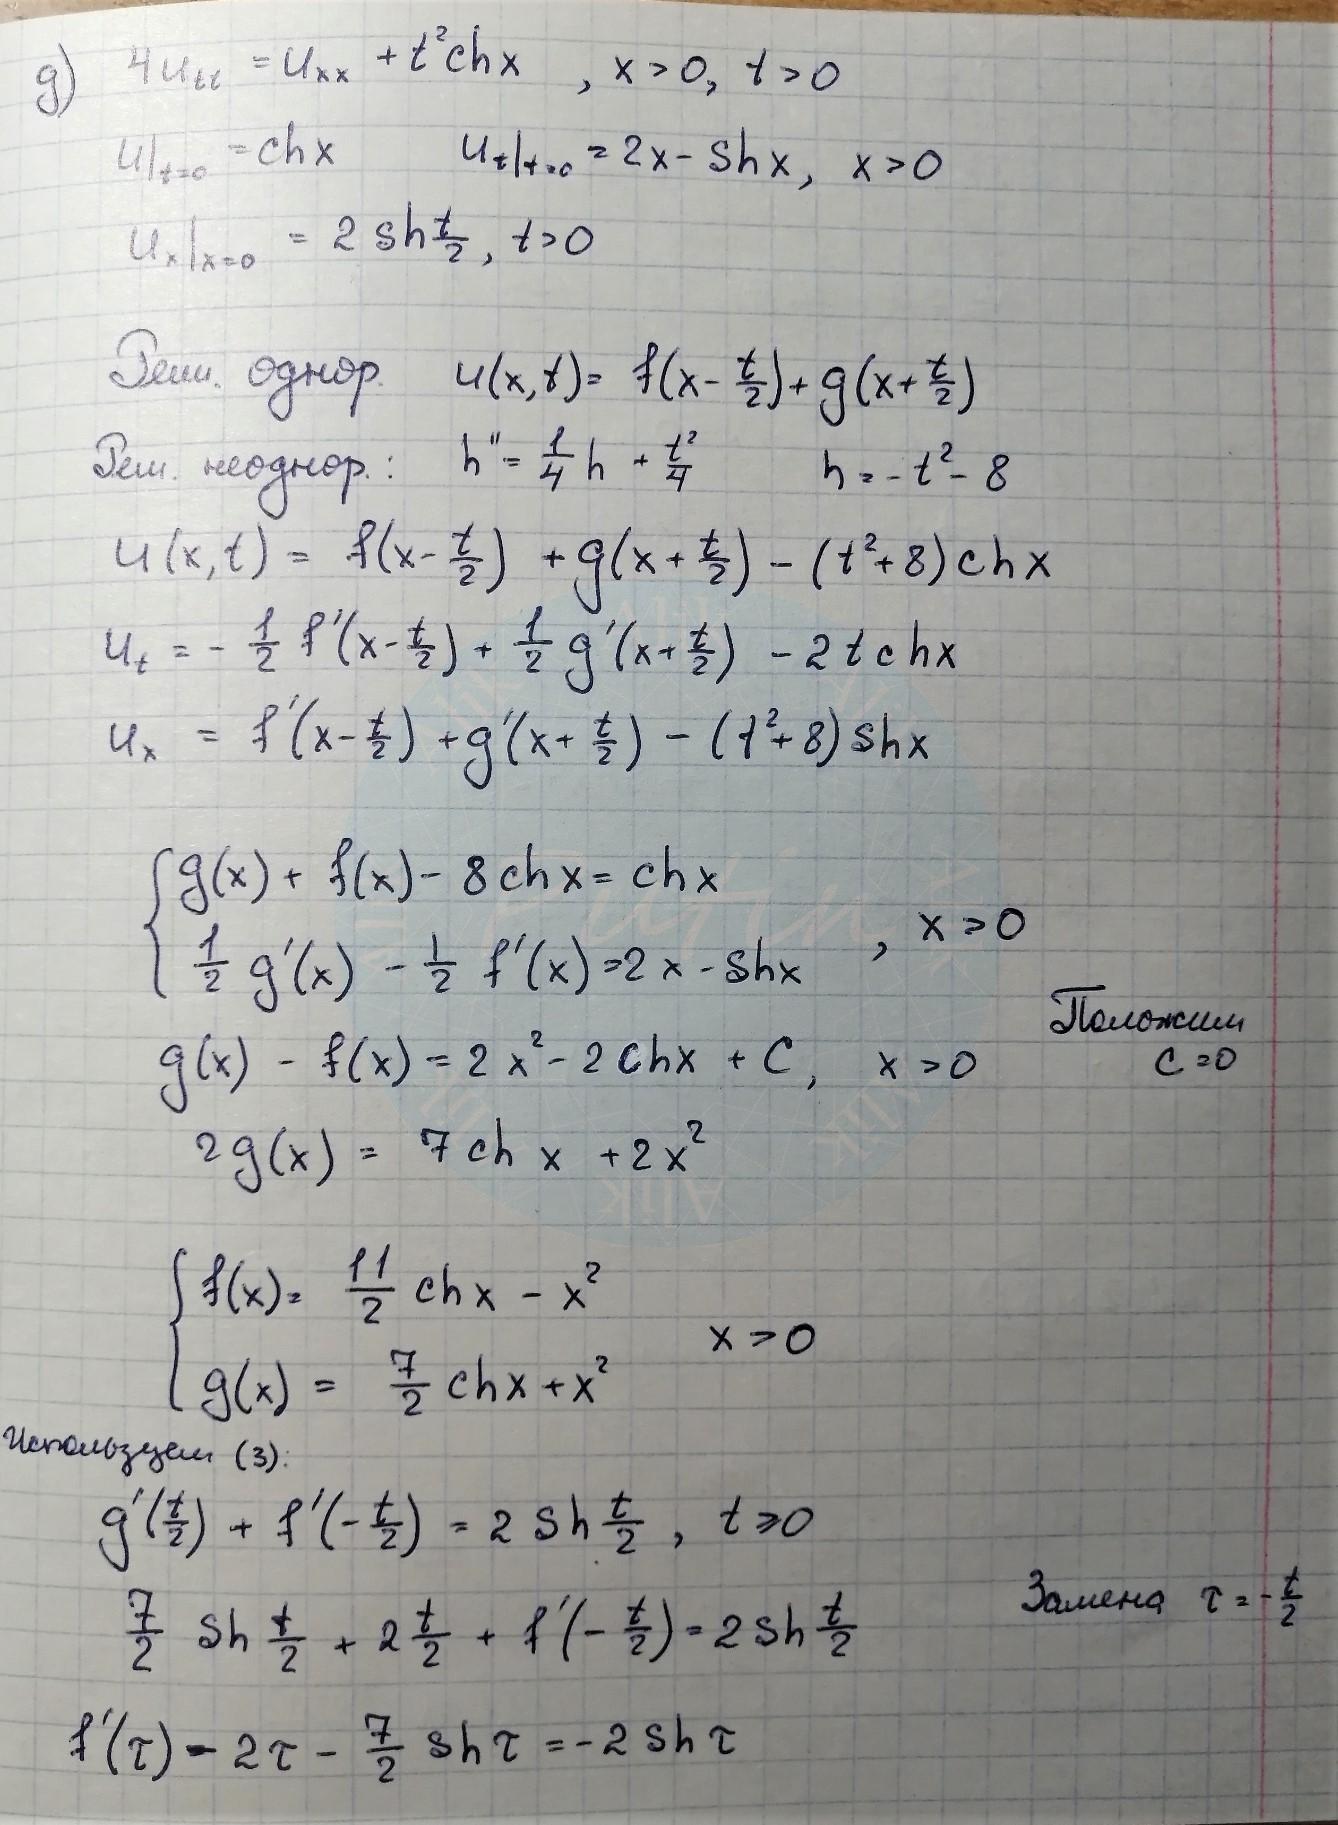 g) 4u_tt = u_xx + t² ch x , x > 0, t > 0
u|_t=0 = ch x u_t|_t=0 = 2x - sh x, x > 0
u_x|_x=0 = 2 sh t/2, t > 0
Реш. однор. u(x,t) = f(x - t/2) + g(x + t/2)
Реш. неоднор.: h'' = 1/4 h + t²/4 h = -t² - 8
u(x,t) = f(x - t/2) + g(x + t/2) - (t² + 8) ch x
u_t = - 1/2 f'(x - t/2) + 1/2 g'(x + t/2) - 2t ch x
u_x = f'(x - t/2) + g'(x + t/2) - (t² + 8) sh x
{ g(x) + f(x) - 8 ch x = ch x
1/2 g'(x) - 1/2 f'(x) = 2x - sh x , x > 0
Положим
g(x) - f(x) = 2x² - 2 ch x + C, x > 0 C = 0
2g(x) = 7 ch x + 2x²
{ f(x) = 11/2 ch x - x²
g(x) = 7/2 ch x + x² x > 0
Используем (3):
g'(t/2) + f'(-t/2) = 2 sh t/2 , t ≥ 0
7/2 sh t/2 + 2 t/2 + f'(-t/2) = 2 sh t/2 Замена τ = -t/2
f'(τ) - 2τ - 7/2 sh τ = -2 sh τ
Alik
Alik